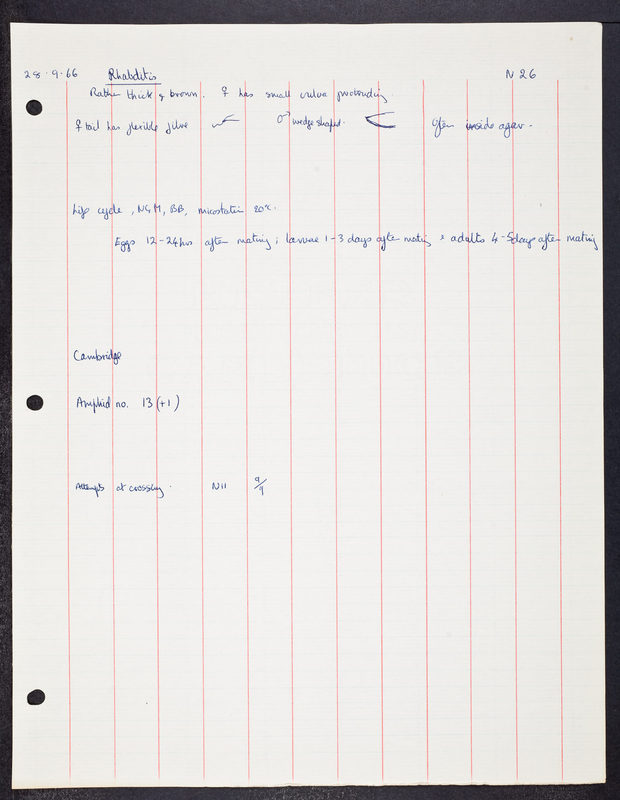 28.9.66 Rhabditis N 26
Rather thick & brown. ♀ has small vulva protruding.
♀ tail has flexible ♂ wedge shaped. Often inside agar.
Life cycle, NGM, BB, mycostatin 20°C.
Eggs 12-24hrs after mating; larvae 1-3 days after mating & adults 4-5days after mating
Cambridge
Amphid no. 13 (+1)
Attempts at crossing. N11 9/9